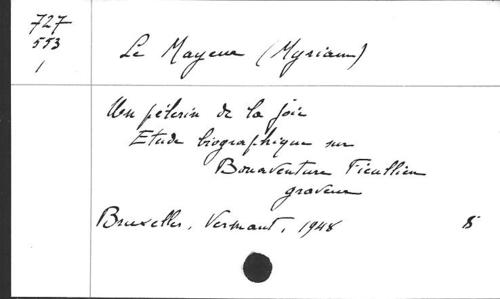 727
553
1
Le Mayeur (Myriam)
Un pélerin de la joie
Etude biographique sur
Bonaventure Fieullien
graveur
Bruxelles, Vermaut, 1948